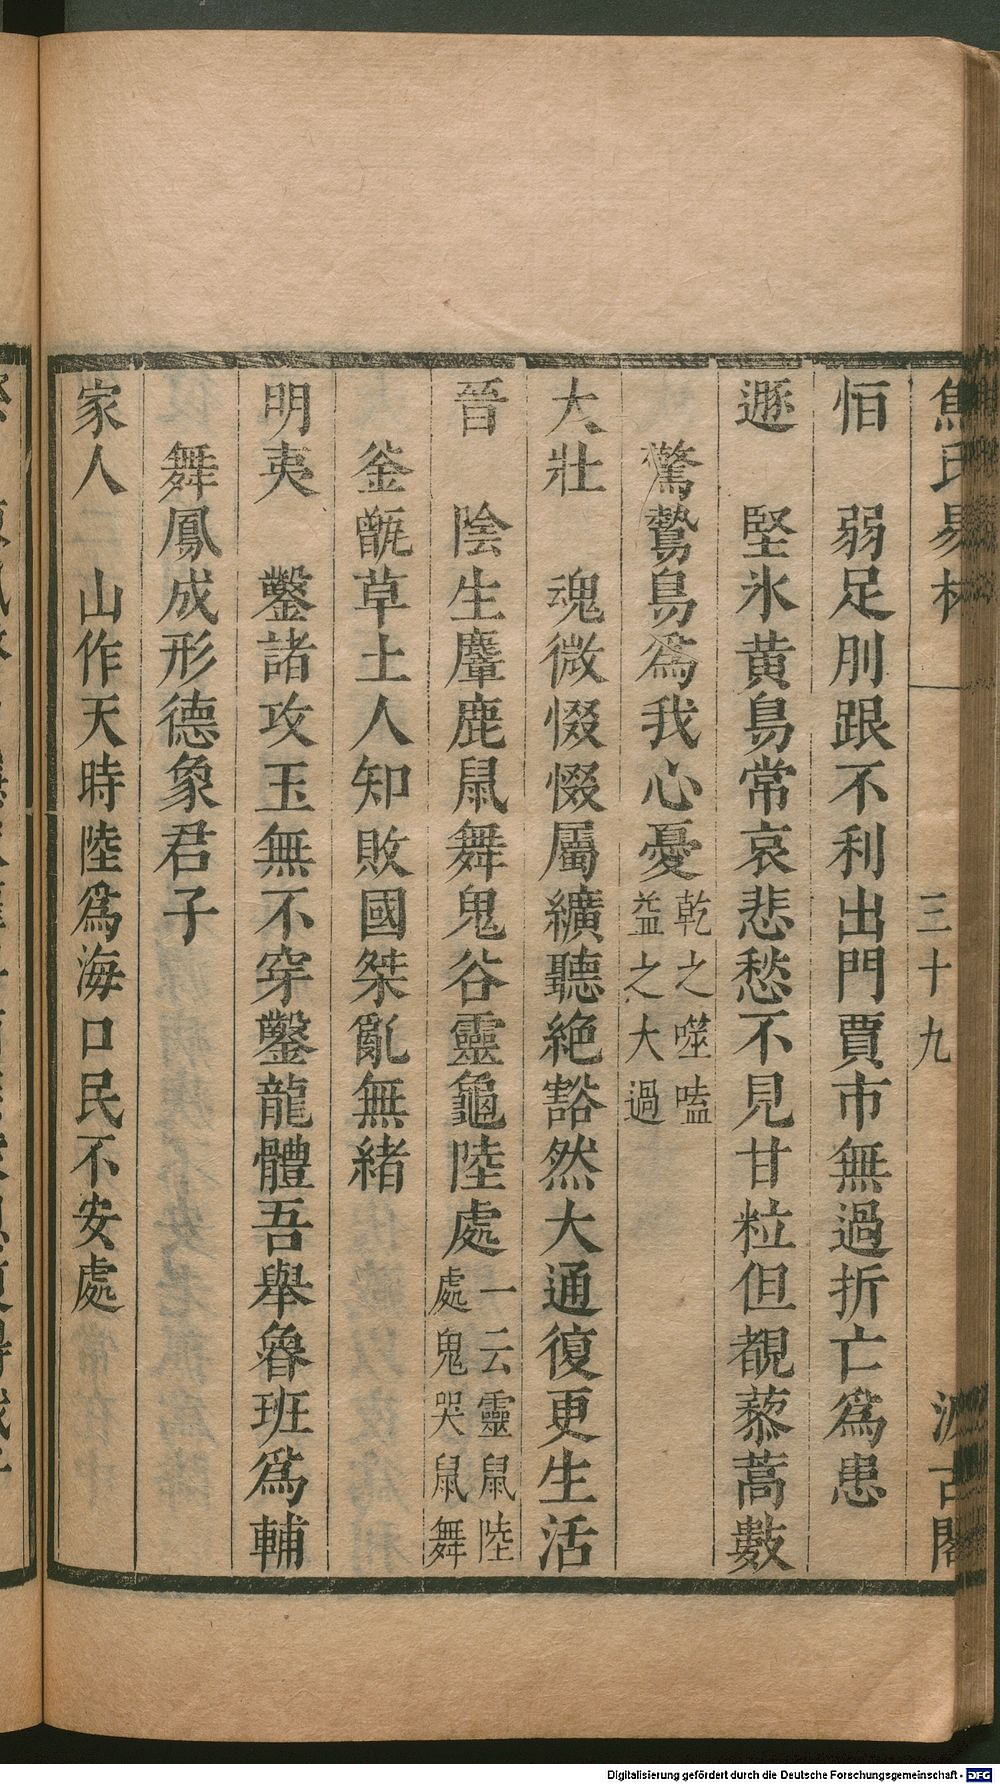 焦氏易林 三十九 汲古閣
恒 弱足刖跟不利出門賈市無過折亡爲患
遯 堅氷黄鳥常哀悲愁不見甘粒但覩藜蒿數
驚鷙鳥爲我心憂乾之噬嗑益之大過
大壯 魂微惙惙屬纊聽絶豁然大通復更生活
晉 陰生麞鹿鼠舞鬼谷靈龜陸處一云靈鼠陸處鬼哭鼠舞
釜甑草土人知敗國桀亂無緒
明夷 鑿諸攻玉無不穿鑿龍體吾舉魯班爲輔
舞鳳成形德象君子
家人 山作天時陸爲海口民不安處
Digitalisierung gefördert durch die Deutsche Forschungsgemeinschaft - DFG